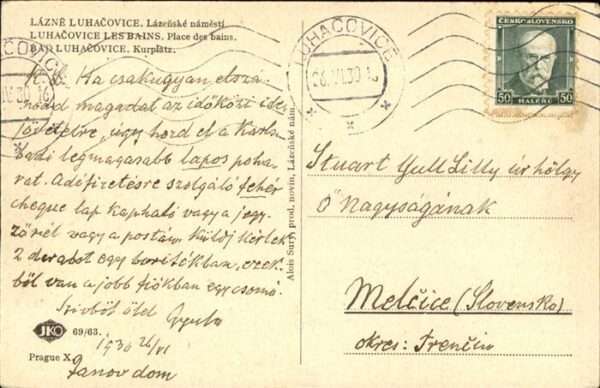 LÁZNĚ LUHAČOVICE. Lázeňské náměstí
LUHAČOVICE LES BAINS. Place des bains.
BAD LUHAČOVICE. Kurplatz.
K. B. Ha csakugyan elszá-
nod magadat az időközi ide
jövetelre, úgy hozd el a Karls-
badi legmagasabb lapos poha-
rat. Adófizetésre szolgáló fehér
cheque lap kapható vagy a jegy-
zőnél vagy a postán, küldj kérlek
2 darabot egy borítékban, ezek-
ből van a jobb fiókban egy csomó.
Szivből ölel Gyula
1930 26/VI
Janov dom
JKO
69/63.
Prague X.
Alois Surý, prod. novin, Lázeňské nám.
LUHAČOVICE
26.VI.30 16
ČESKOSLOVENSKO
50 HALÉŘŮ 50
Stuart Gull Lilly úr hölgy
Ő Nagyságának
Melčice (Slovensko)
okres: Trenčín